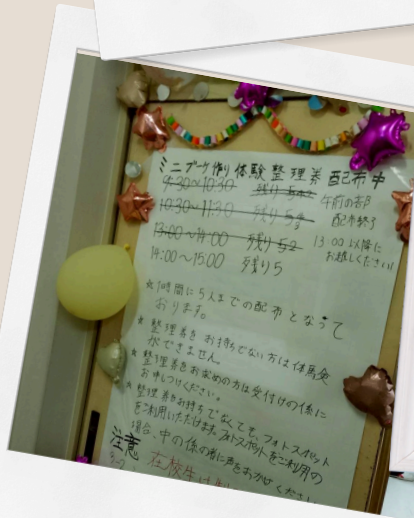 ミニブーケ作り体験整理券配布中
9:30~10:30 残り
10:30~11:30 残り5
13:00~14:00 残り5
14:00~15:00 残り5
午前の部
配布終了
13:00以降に
お越しください!
★1時間に5人までの配布となって
おります。
★整理券をお持ちでない方は体験
ができません。
★整理券をお求めの方は受付けの係に
お申しつけください。
★整理券をお持ちでなくても、フォトスポット
をご利用いただけます。フォトスポットをご利用の
場合、中の係の者に声をおかけください
注意
在校生は